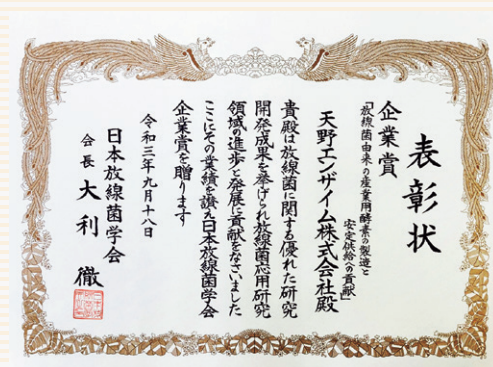 表彰状
企業賞
「放線菌由来の産業用酵素の製造と
安定供給への貢献」
天野エンザイム株式会社殿
貴殿は放線菌に関する優れた研究
開発成果を挙げられ放線菌応用研究
領域の進歩と発展に貢献をなさいました
ここにその業績を讃え日本放線菌学会
企業賞を贈ります
令和三年九月十八日
日本放線菌学会
会長 大利 徹